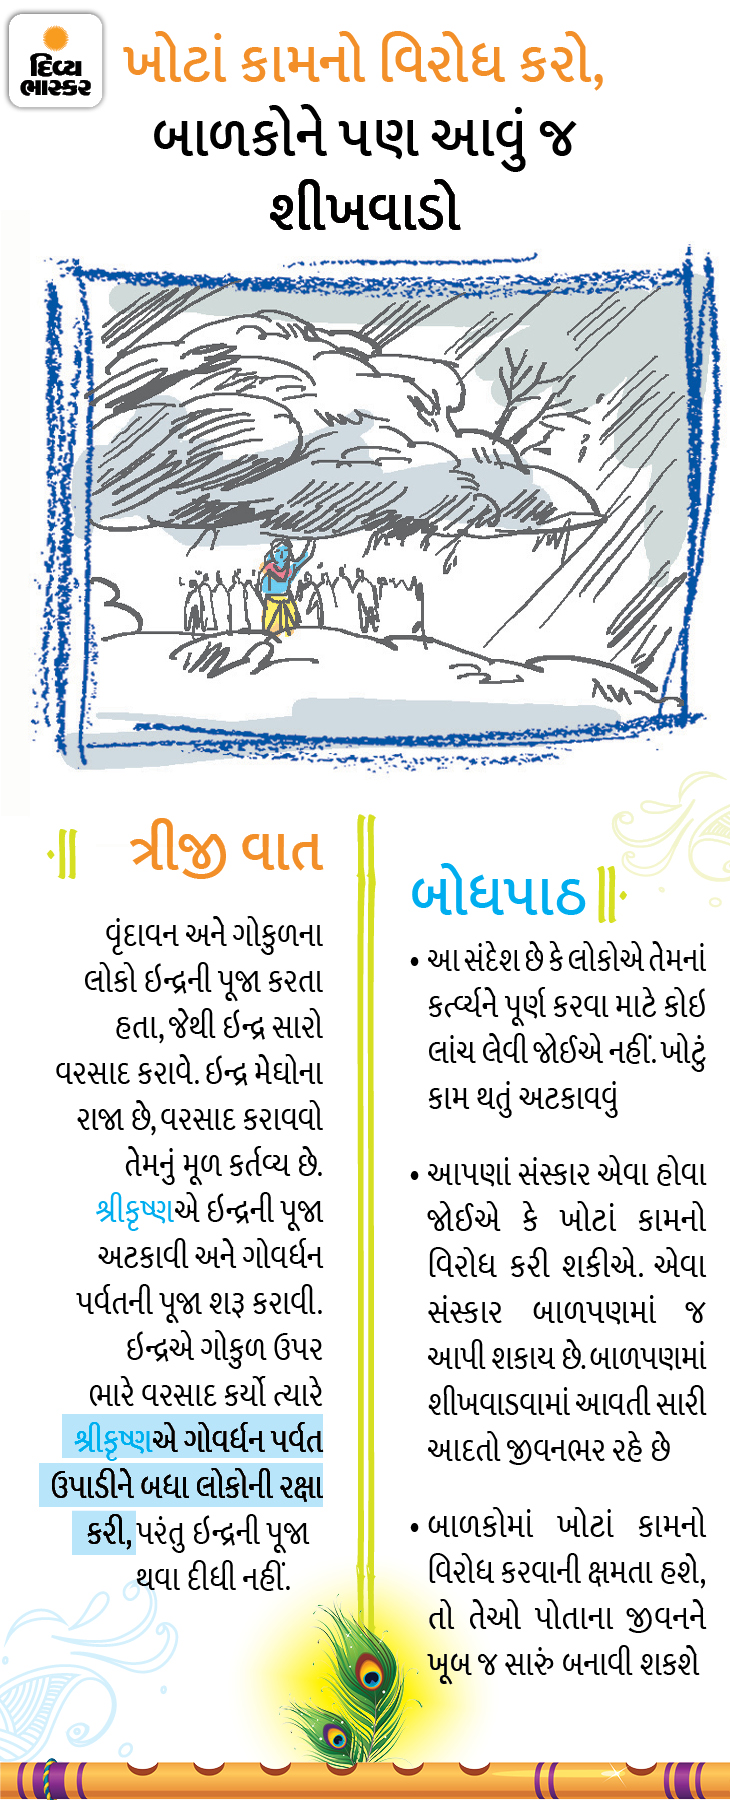 દિવ્ય
ભાસ્કર
ખોટાં કામનો વિરોધ કરો,
બાળકોને પણ આવું જ
શીખવાડો
ત્રીજી વાત
વૃંદાવન અને ગોકુળના
લોકો ઇન્દ્રની પૂજા કરતા
હતા, જેથી ઇન્દ્ર સારો
વરસાદ કરાવે. ઇન્દ્ર મેઘોના
રાજા છે, વરસાદ કરાવવો
તેમનું મૂળ કર્તવ્ય છે.
શ્રીકૃષ્ણએ ઇન્દ્રની પૂજા
અટકાવી અને ગોવર્ધન
પર્વતની પૂજા શરૂ કરાવી.
ઇન્દ્રએ ગોકુળ ઉપર
ભારે વરસાદ કર્યો ત્યારે
શ્રીકૃષ્ણએ ગોવર્ધન પર્વત
ઉપાડીને બધા લોકોની રક્ષા
કરી, પરંતુ ઇન્દ્રની પૂજા
થવા દીધી નહીં.
બોધપાઠ
• આ સંદેશ છે કે લોકોએ તેમનાં
કર્ત્વ્યને પૂર્ણ કરવા માટે કોઇ
લાંચ લેવી જોઈએ નહીં. ખોટું
કામ થતું અટકાવવું
• આપણાં સંસ્કાર એવા હોવા
જોઈએ કે ખોટાં કામનો
વિરોધ કરી શકીએ. એવા
સંસ્કાર બાળપણમાં જ
આપી શકાય છે. બાળપણમાં
શીખવાડવામાં આવતી સારી
આદતો જીવનભર રહે છે
• બાળકોમાં ખોટાં કામનો
વિરોધ કરવાની ક્ષમતા હશે,
તો તેઓ પોતાના જીવનને
ખૂબ જ સારું બનાવી શકશે